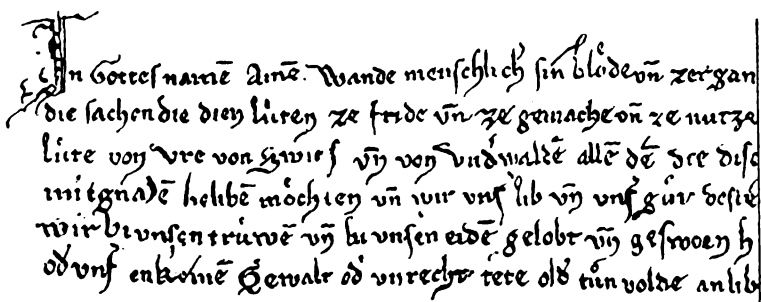 In Gottes namē Amē. Wande menschlich sin blöde vn̄ zergan
die sachen die dien lüten ze fride vn̄ ze gemache vn̄ ze nutze
lüte von Vre von Swits vn̄ von Vndʼwaldē allē dē die dise
mitgnadē helibē möchten vn̄ wir vnſ lib vn̄ vnſ gůt deste
wir bi vnſen trüwē vn̄ bi vnſen eidē gelobt vn̄ gesworn h
odʼ vnſ enkeinē Gewalt odʼ vnrecht tete oldʼ tůn volde an lib